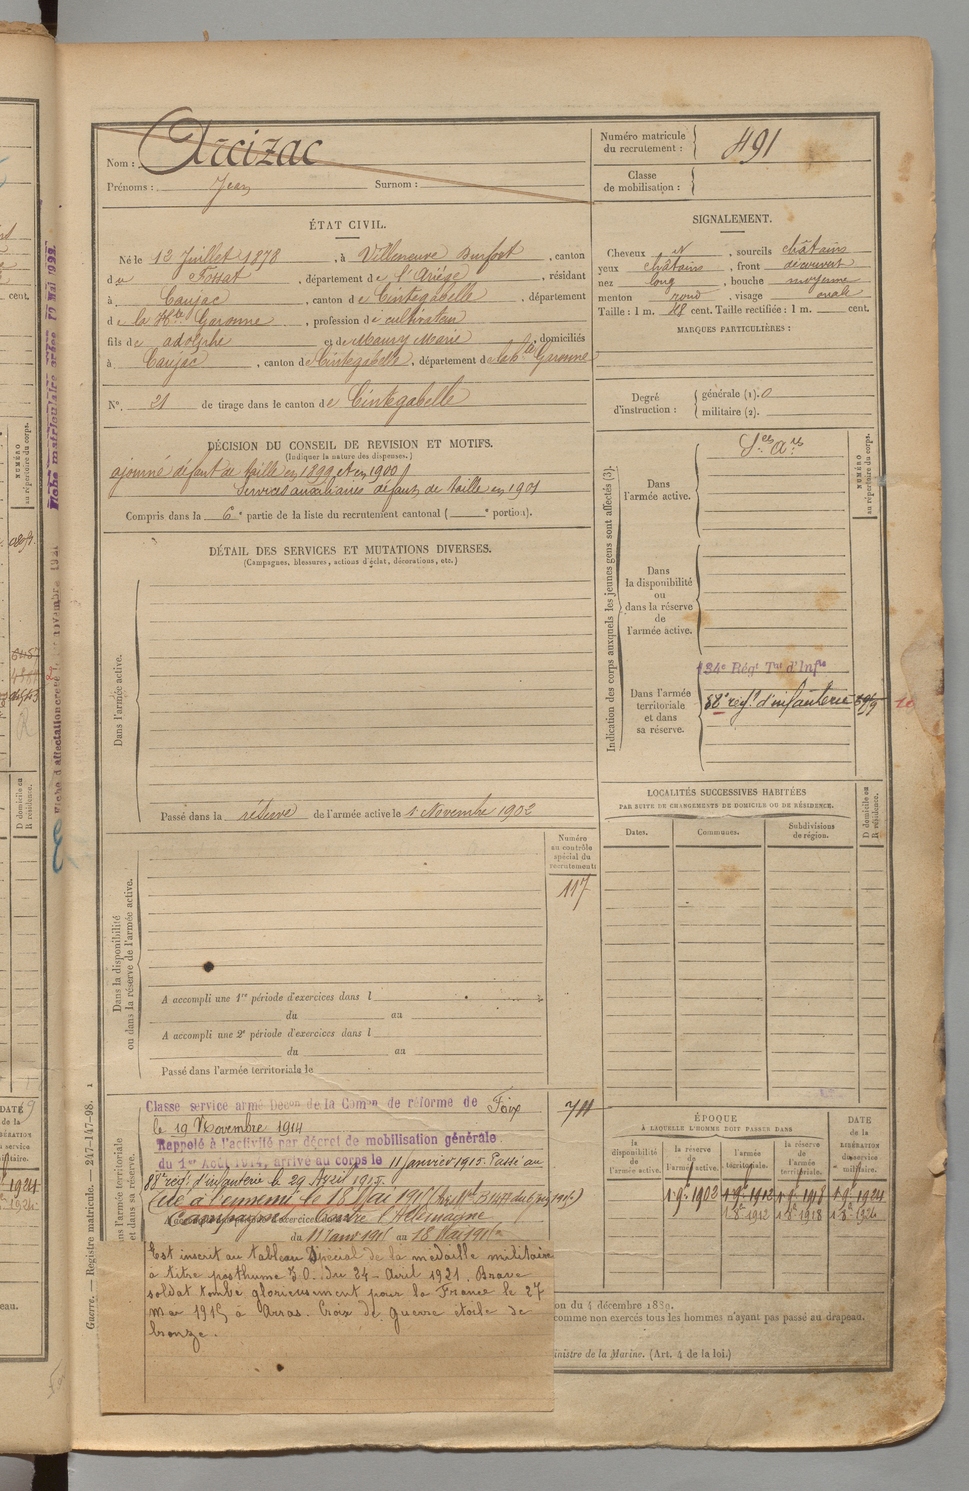 Nom : Arcizac
Prénoms : Jean Surnom :
Numéro matricule du recrutement : 491
Classe de mobilisation :
ÉTAT CIVIL.
Né le 12 Juillet 1878, à Villeneuve Durfort, canton
du Fossat, département de l'Ariége, résidant
à Caujac, canton de Cintegabelle, département
de la Hte Garonne, profession de cultivateur
fils de adolphe et de Maury Marie, domiciliés
à Caujac, canton de Cintegabelle, département de la Hte Garonne
N°. 21 de tirage dans le canton de Cintegabelle
SIGNALEMENT.
Cheveux N, sourcils châtains
yeux châtains, front découvert
nez long, bouche moyenne
menton rond, visage ovale
Taille : 1 m. 48 cent. Taille rectifiée : 1 m. cent.
MARQUES PARTICULIÈRES :
Degré d'instruction : générale (1). 0
militaire (2).
DÉCISION DU CONSEIL DE REVISION ET MOTIFS.
(Indiquer la nature des dispenses.)
ajourné défaut de taille en 1899 et en 1900
Services auxiliaires défaut de taille en 1901
Compris dans la 6e partie de la liste du recrutement cantonal ( e portion).
DÉTAIL DES SERVICES ET MUTATIONS DIVERSES.
(Campagnes, blessures, actions d'éclat, décorations, etc.)
Dans l'armée active.
Passé dans la réserve de l'armée active le 1 Novembre 1902
Indication des corps auxquels les jeunes gens sont affectés (3).
NUMÉRO au répertoire du corps.
Dans l'armée active.
Ses Ares
Dans la disponibilité ou dans la réserve de l'armée active.
Dans l'armée territoriale et dans sa réserve.
134e Régt Tal d'Infie
88e régt d'infanterie
LOCALITÉS SUCCESSIVES HABITÉES
PAR SUITE DE CHANGEMENTS DE DOMICILE OU DE RÉSIDENCE.
Dates. Communes. Subdivisions de région.
D domicile ou R résidence.
Numéro au contrôle spécial du recrutement
117
Dans la disponibilité ou dans la réserve de l'armée active.
A accompli une 1re période d'exercices dans l
du au
A accompli une 2e période d'exercices dans l
du au
Passé dans l'armée territoriale le
Classe service armé Décon de la Comon de réforme de Foix
le 19 Novembre 1914
Rappelé à l'activité par décret de mobilisation générale
du 1er Août 1914, arrivé au corps le 11 Janvier 1915. Passé au
88e régt d'infanterie le 29 Avril 1915.
Tué à l'ennemi le 18 Mai 1915
Campagne Contre l'Allemagne
du 11 Janv 1915 au 18 Mai 1915
Est inscrit au tableau Spécial de la médaille militaire
à titre posthume J.O. du 24 Avril 1921. Brave
soldat tombé glorieusement pour la France le 27
Mai 1915 à Arras. Croix de guerre étoile de
bronze.
ÉPOQUE
À LAQUELLE L'HOMME DOIT PASSER DANS
la disponibilité de l'armée active. la réserve de l'armée active. l'armée territoriale. la réserve de l'armée territoriale.
DATE de la LIBÉRATION du service militaire.
1.9bre 1902 1.9bre 1912 1.9bre 1918 1.9bre 1924
1.8bre 1912 1.8bre 1918 1.8bre 1924
on du 4 décembre 1830.
comme non exercés tous les hommes n'ayant pas passé au drapeau.
inistre de la Marine. (Art. 4 de la loi.)
Guerre. — Registre matricule. — 247-147-98.